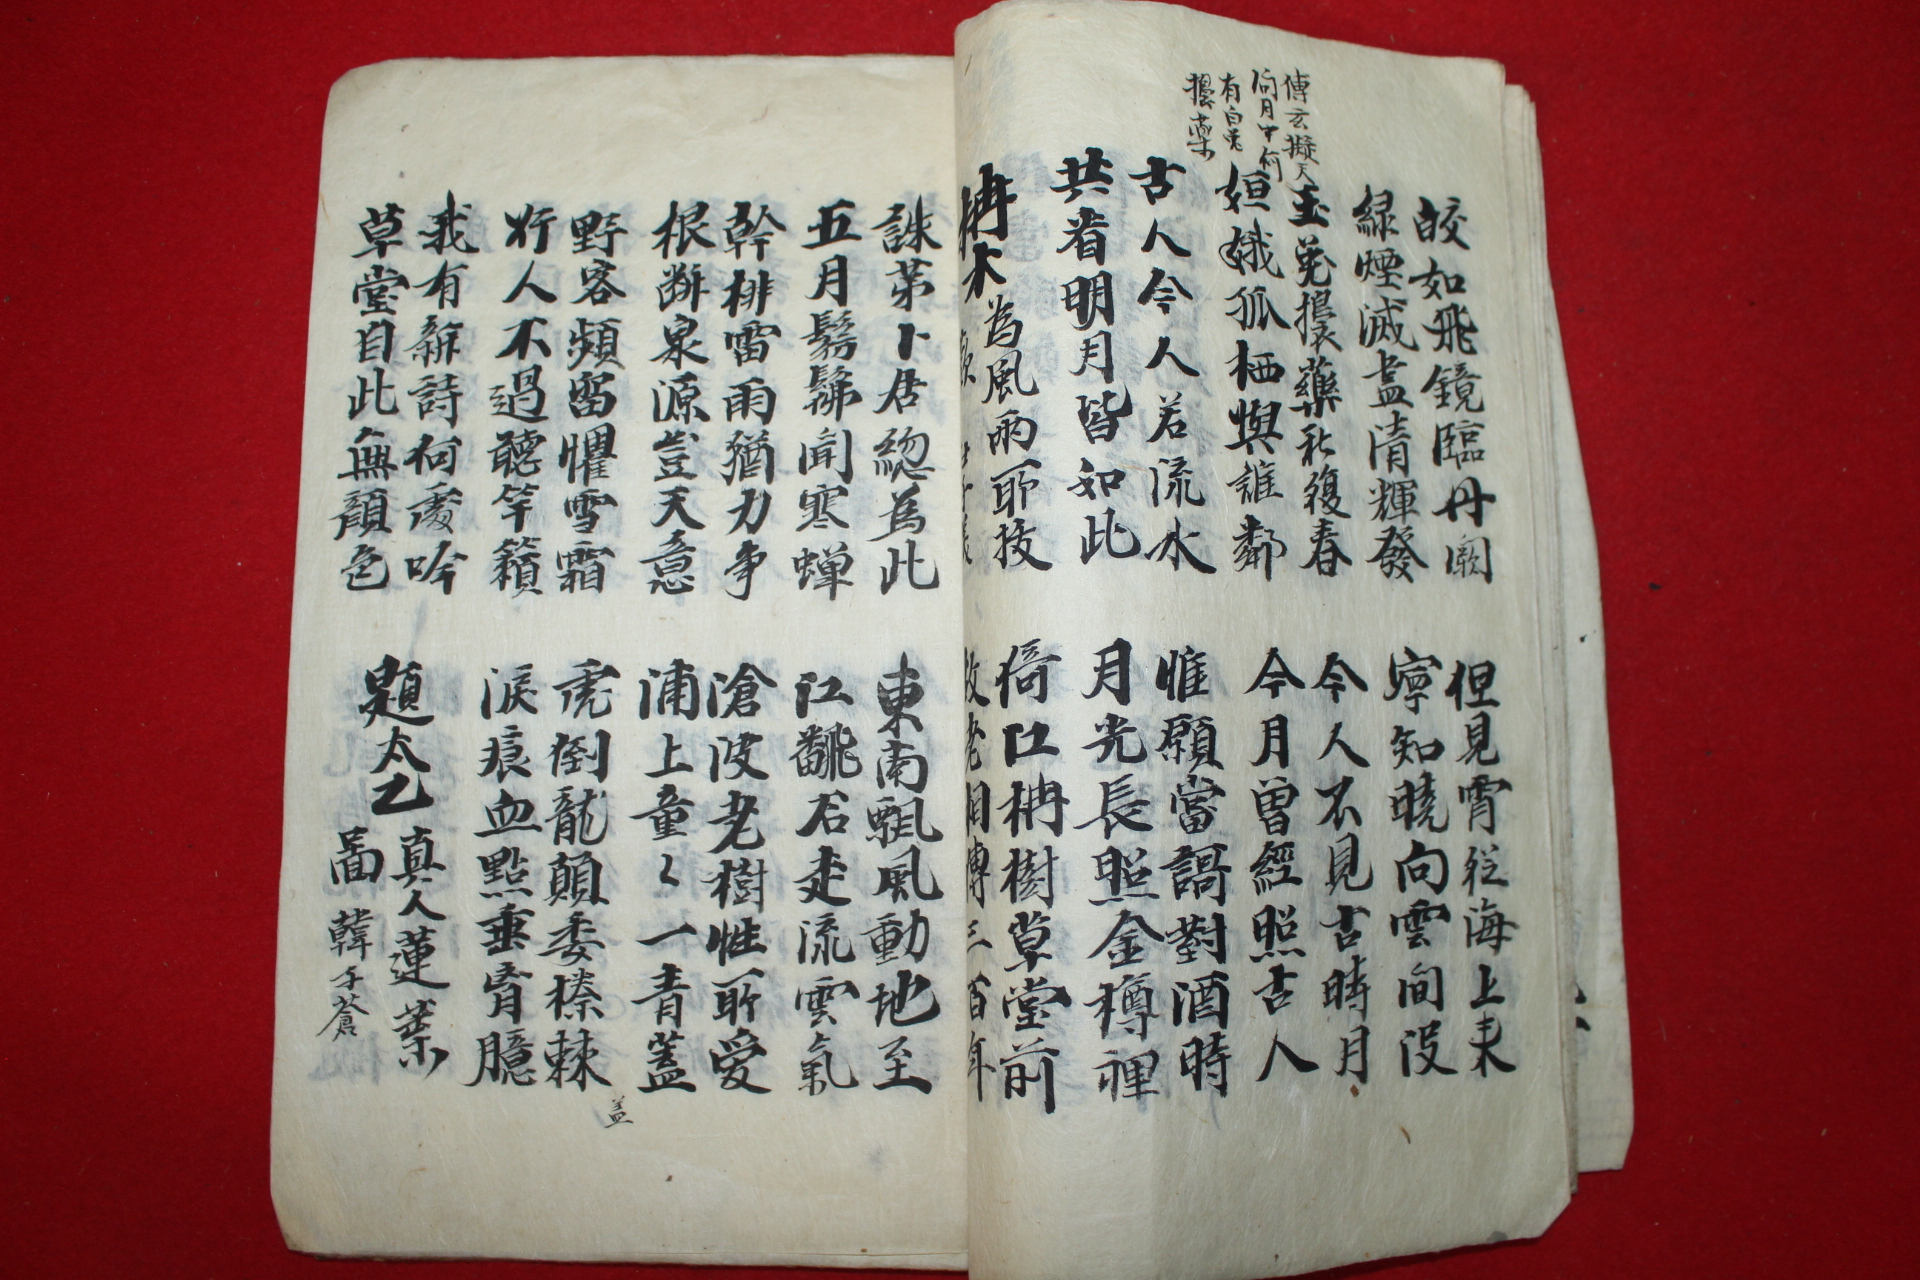 傅玄擬天
問月中何
有白兔
搗藥
皎如飛鏡臨丹闕
綠煙滅盡清輝發
但見宵從海上来
寧知曉向雲间没
玉兔搗藥秋復春
姮娥孤栖與誰鄰
今人不見古時月
今月曾經照古人
古人今人若流水
共看明月皆如此
惟願當謌對酒時
月光長照金樽裡
柟木為風雨所拔
倚江柟樹草堂前
故老相傳三百年
誅茅卜居総為此
五月髣髴聞寒蟬
東南飄風動地至
江飜石走流雲氣
幹排雷雨猶力爭
根斷泉源豈天意
滄波老樹性所愛
浦上童〻一青蓋
盖
野客頻留懼雪霜
行人不過聽竽籟
虎倒龍顛委榛棘
淚痕血點垂胷臆
我有新詩何處吟
草堂自此無顏色
題太乙真人蓮葉圖 韓子蒼